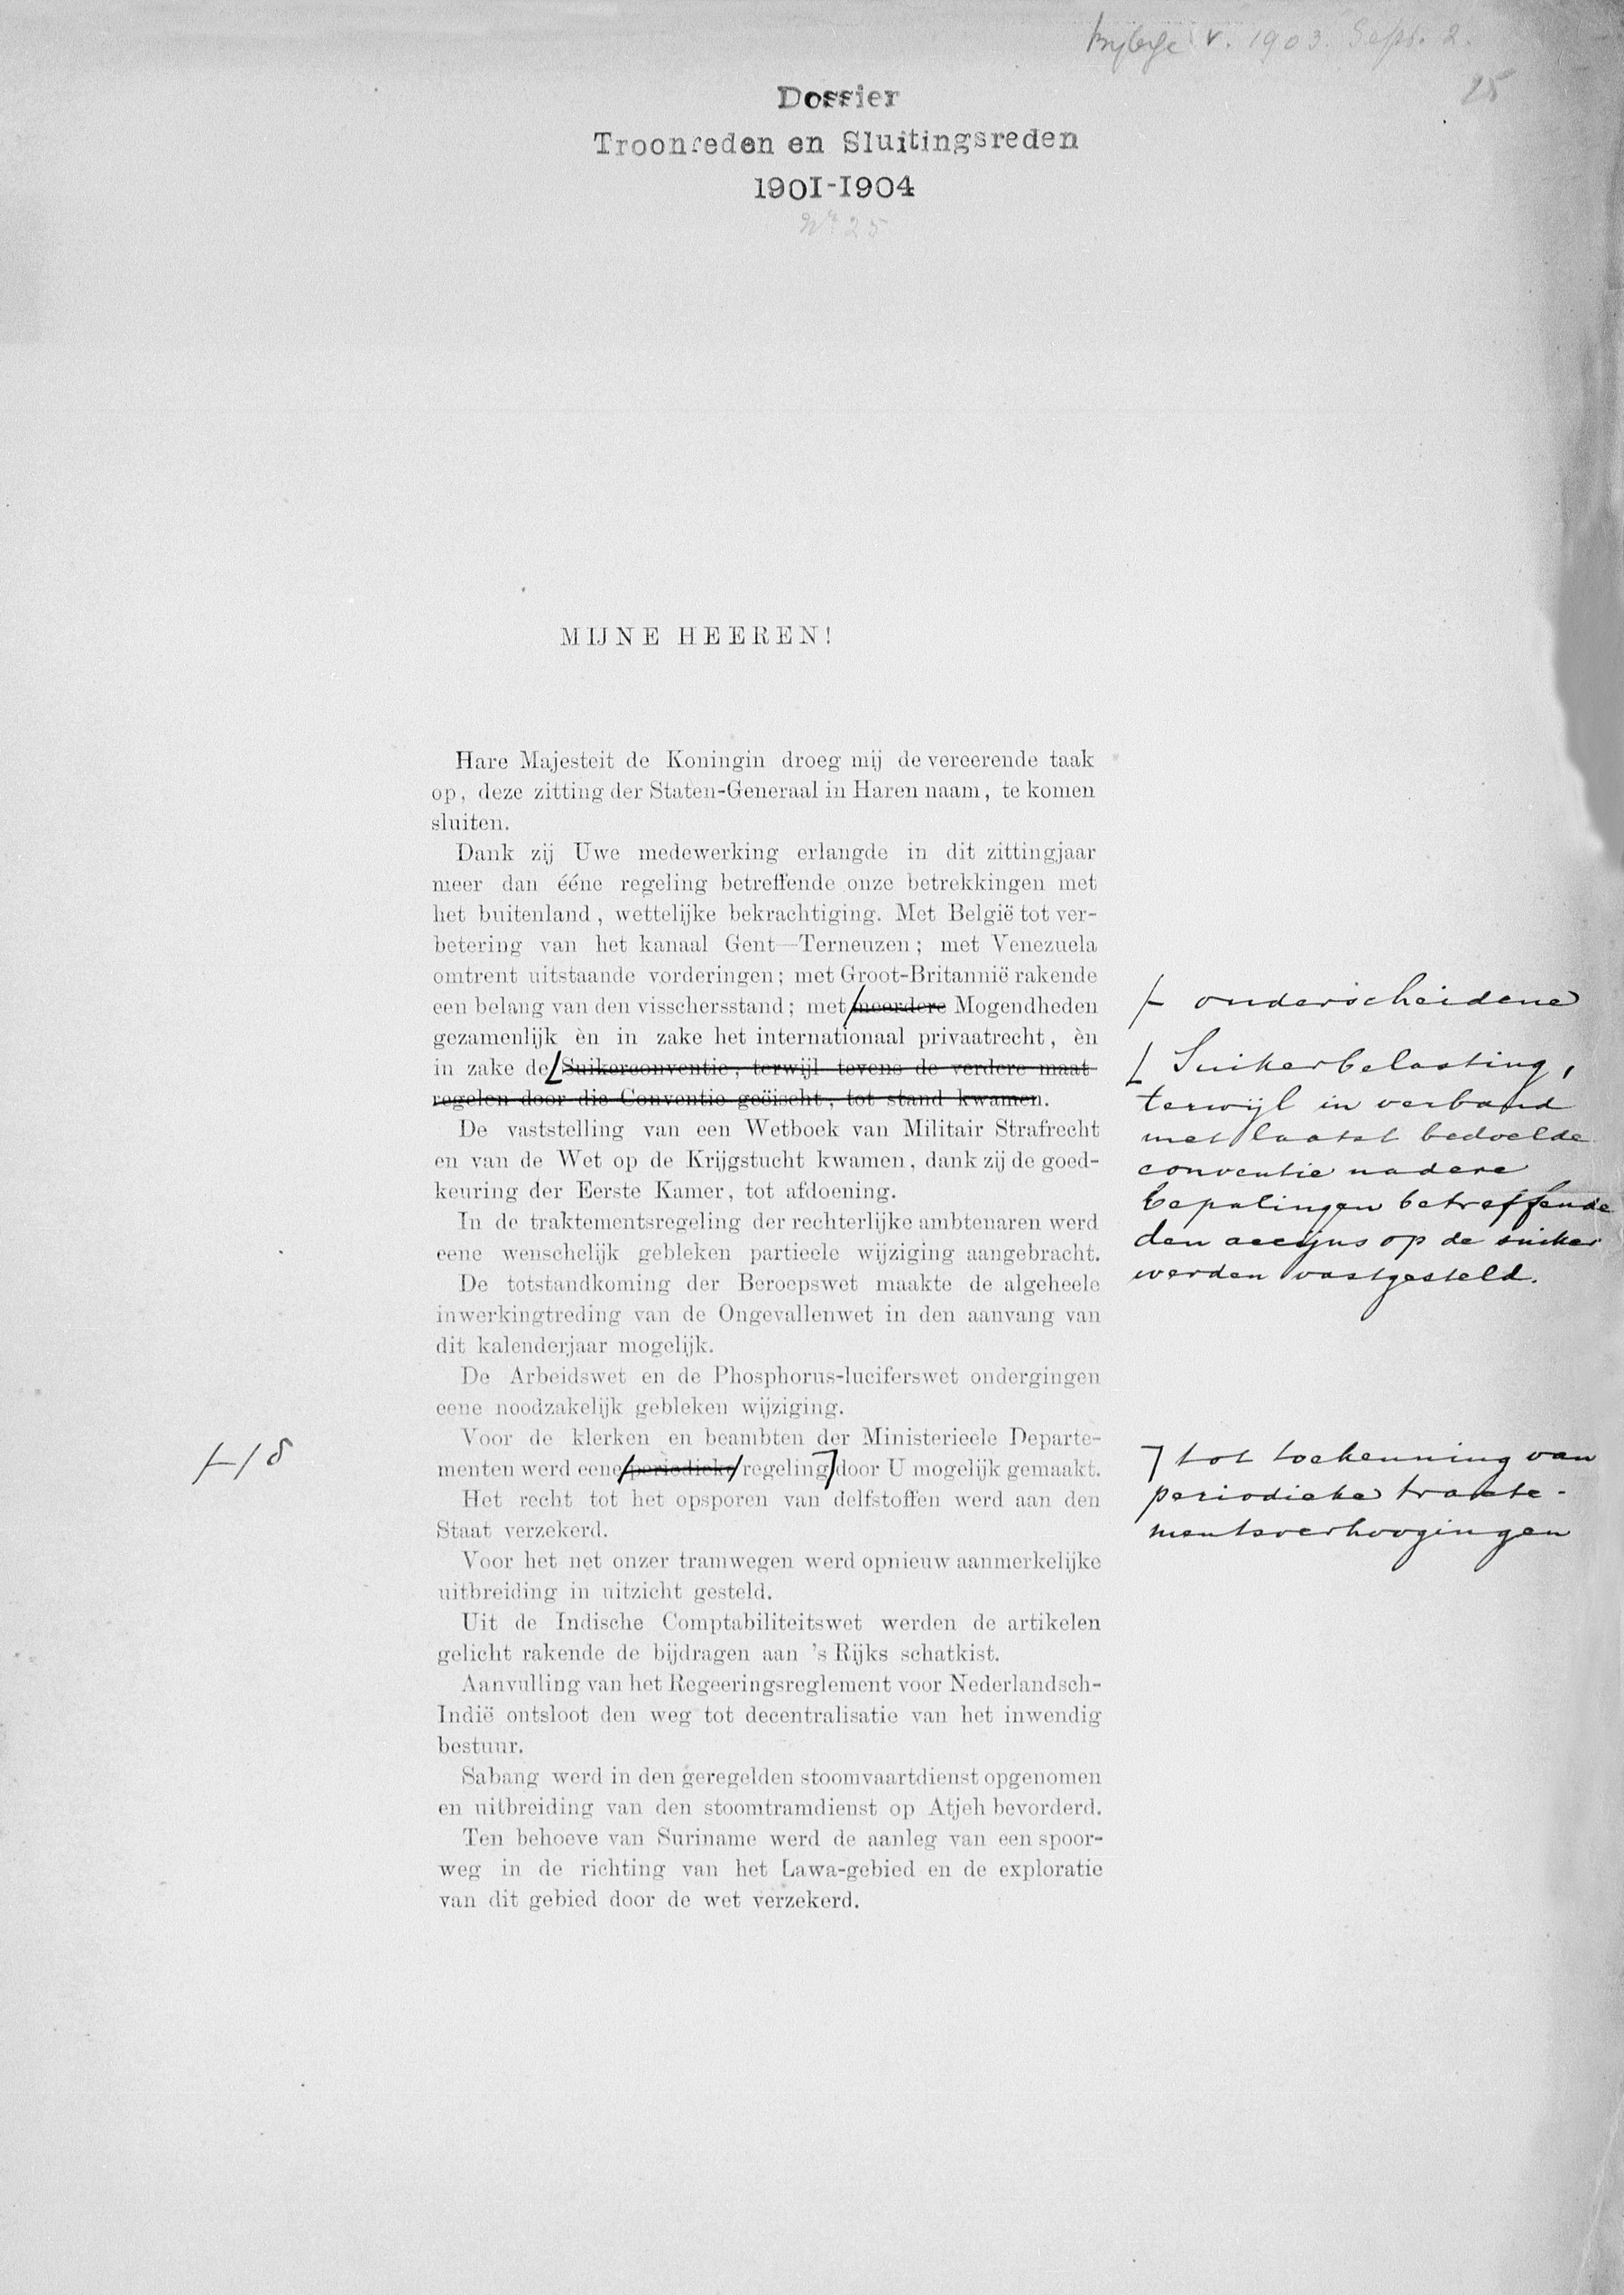 Bijlage v. 1903. Sept. 2.
25
Dossier
Troonreden en Sluitingsreden
1901-1904
Nr 25
MIJNE HEEREN!
Hare Majesteit de Koningin droeg mij de vereerende taak
op, deze zitting der Staten-Generaal in Haren naam, te komen
sluiten.
Dank zij Uwe medewerking erlangde in dit zittingjaar
meer dan ééne regeling betreffende onze betrekkingen met
het buitenland, wettelijke bekrachtiging. Met België tot ver-
betering van het kanaal Gent—Terneuzen; met Venezuela
omtrent uitstaande vorderingen; met Groot-Britannië rakende
een belang van den visschersstand; met meerdere Mogendheden
gezamenlijk èn in zake het internationaal privaatrecht, èn
in zake de Suikerconventie, terwijl tevens de verdere maat
regelen door die Conventie geëischt, tot stand kwamen.
De vaststelling van een Wetboek van Militair Strafrecht
en van de Wet op de Krijgstucht kwamen, dank zij de goed-
keuring der Eerste Kamer, tot afdoening.
In de traktementsregeling der rechterlijke ambtenaren werd
eene wenschelijk gebleken partieele wijziging aangebracht.
De totstandkoming der Beroepswet maakte de algeheele
inwerkingtreding van de Ongevallenwet in den aanvang van
dit kalenderjaar mogelijk.
De Arbeidswet en de Phosphorus-luciferswet ondergingen
eene noodzakelijk gebleken wijziging.
Voor de klerken en beambten der Ministerieele Departe-
menten werd eene periodieke regeling door U mogelijk gemaakt.
Het recht tot het opsporen van delfstoffen werd aan den
Staat verzekerd.
Voor het net onzer tramwegen werd opnieuw aanmerkelijke
uitbreiding in uitzicht gesteld.
Uit de Indische Comptabiliteitswet werden de artikelen
gelicht rakende de bijdragen aan 's Rijks schatkist.
Aanvulling van het Regeeringsreglement voor Nederlandsch-
Indië ontsloot den weg tot decentralisatie van het inwendig
bestuur.
Sabang werd in den geregelden stoomvaartdienst opgenomen
en uitbreiding van den stoomtramdienst op Atjeh bevorderd.
Ten behoeve van Suriname werd de aanleg van een spoor-
weg in de richting van het Lawa-gebied en de exploratie
van dit gebied door de wet verzekerd.
onderscheidene
Suikerbelasting,
terwijl in verband
met laatst bedoelde
conventie nadere
bepalingen betreffende
den accijns op de suiker
werden vastgesteld.
tot toekenning van
periodieke trakte-
mentsverhoogingen